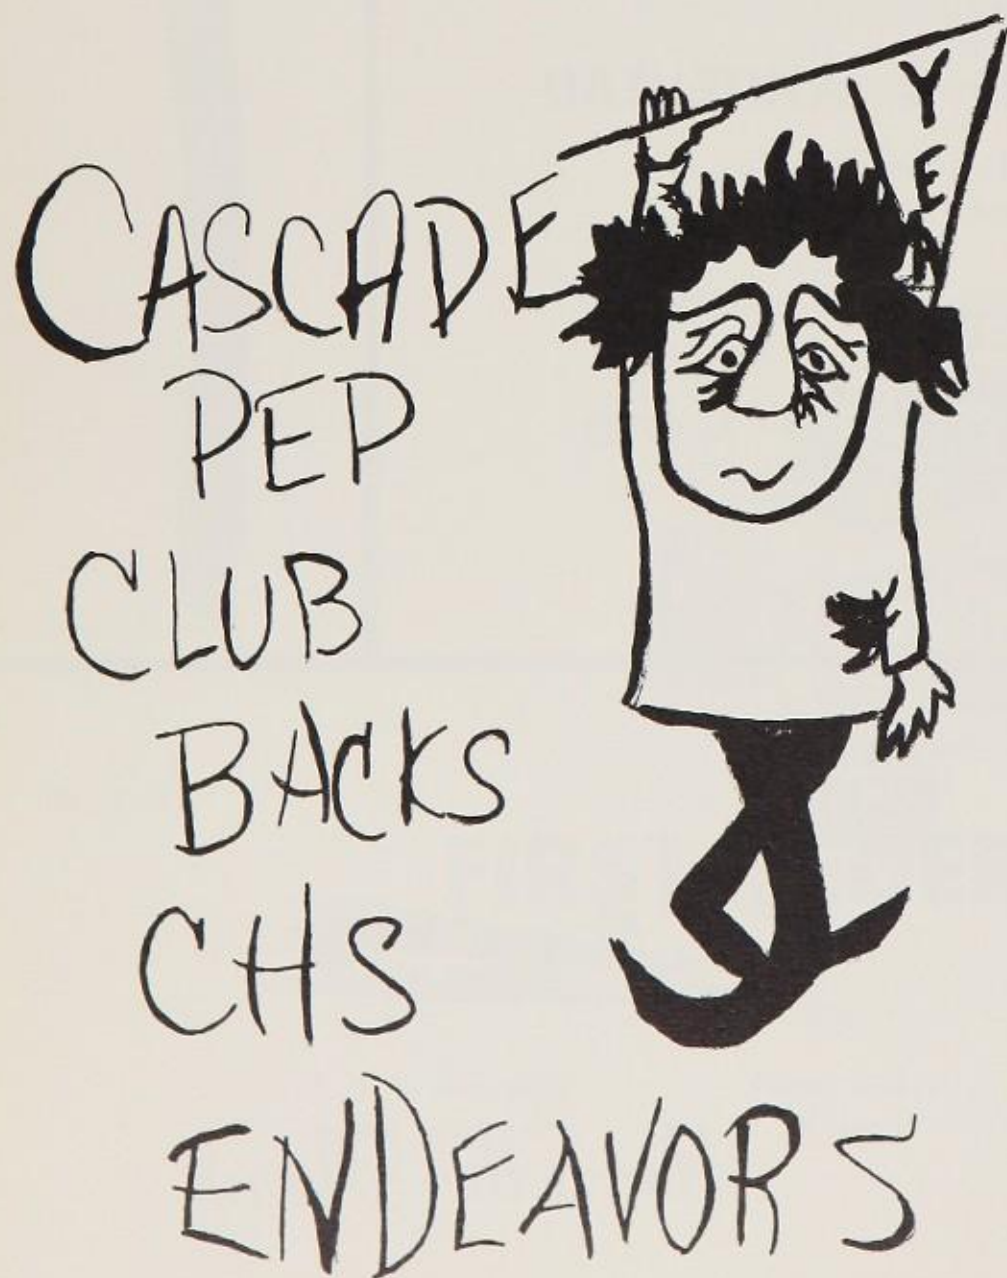 CASCADE
PEP
CLUB
BACKS
CHS
ENDEAVORS